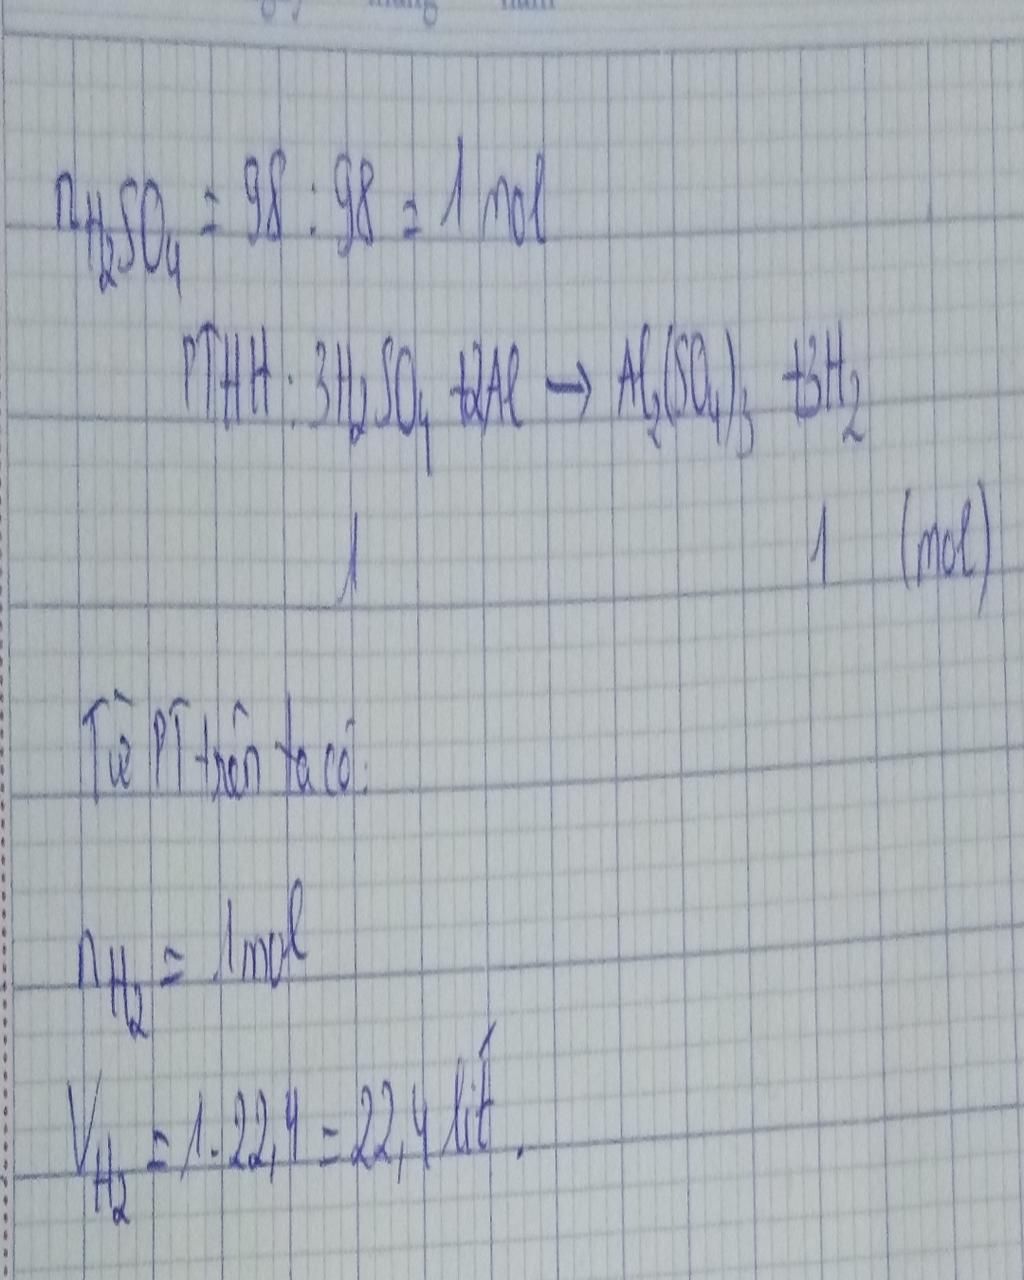 tháng năm
nH₂SO₄ = 98 : 98 = 1 mol
PTHH : 3H₂SO₄ +2Al → Al₂(SO₄)₃ +3H₂
1 1 (mol)
Từ PT trên ta có:
nH₂ = 1 mol
VH₂ = 1.22,4 = 22,4 lít.